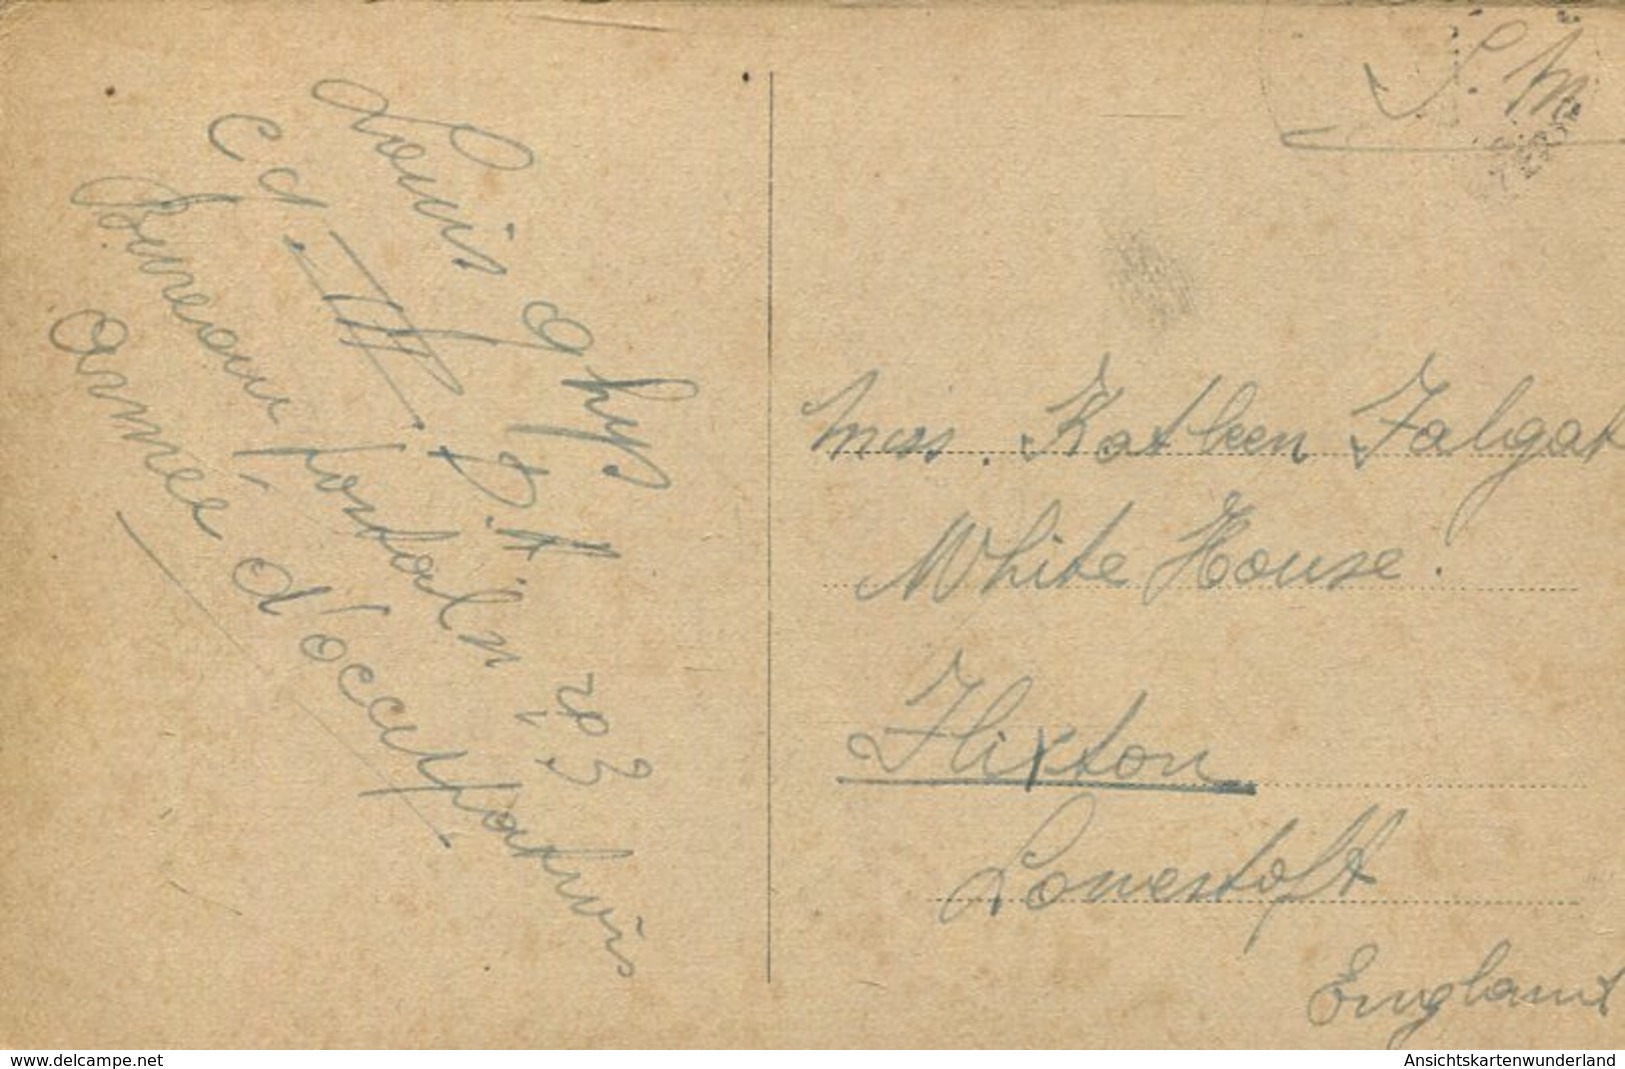 Louis Ghys
Bureau postal n° 3
armee d'occupation
S.M
Miss. Kathleen Falgat
White House.
Flixton
Lowestoft
England
www.delcampe.net
Ansichtskartenwunderland